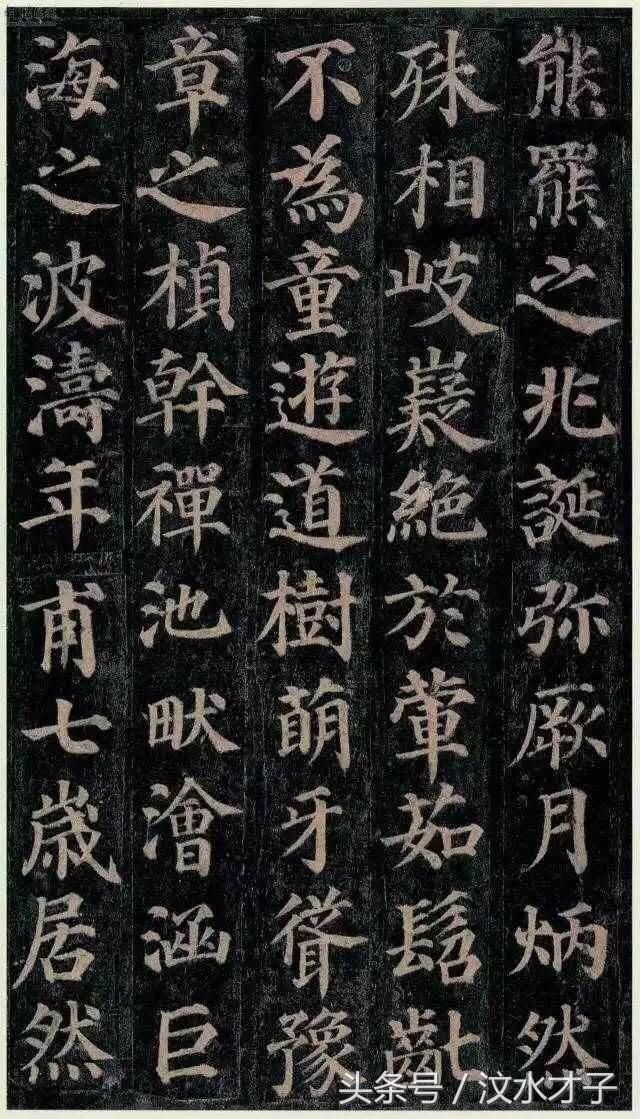 熊羆之兆誕弥厥月炳然
殊相岐嶷絶於葷茹髫齓
不為童遊道樹萌牙聳豫
章之楨幹禪池畎澮涵巨
海之波濤年甫七歳居然
头条号／汶水才子